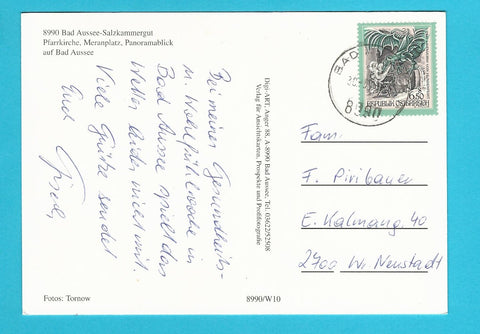 8990 Bad Aussee-Salzkammergut
Pfarrkirche, Meranplatz, Panoramablick
auf Bad Aussee
Bei meiner Gesundheits-
u. Wohlfühlwoche in
Bad Aussee spielt das
Wetter leider nicht mit.
Viele Grüße sendet
Euch
Fotos: Tornow
Digi-ART, Anger 88, A-8990 Bad Aussee, Tel. 03622/52508
Verlag für Ansichtskarten, Prospekte und Profifotografie
8990/W10
BAD
8990
REPUBLIK ÖSTERREICH
6.50
Fam.
F. Piribauer
E. Kalmang. 40
2700 Wr. Neustadt